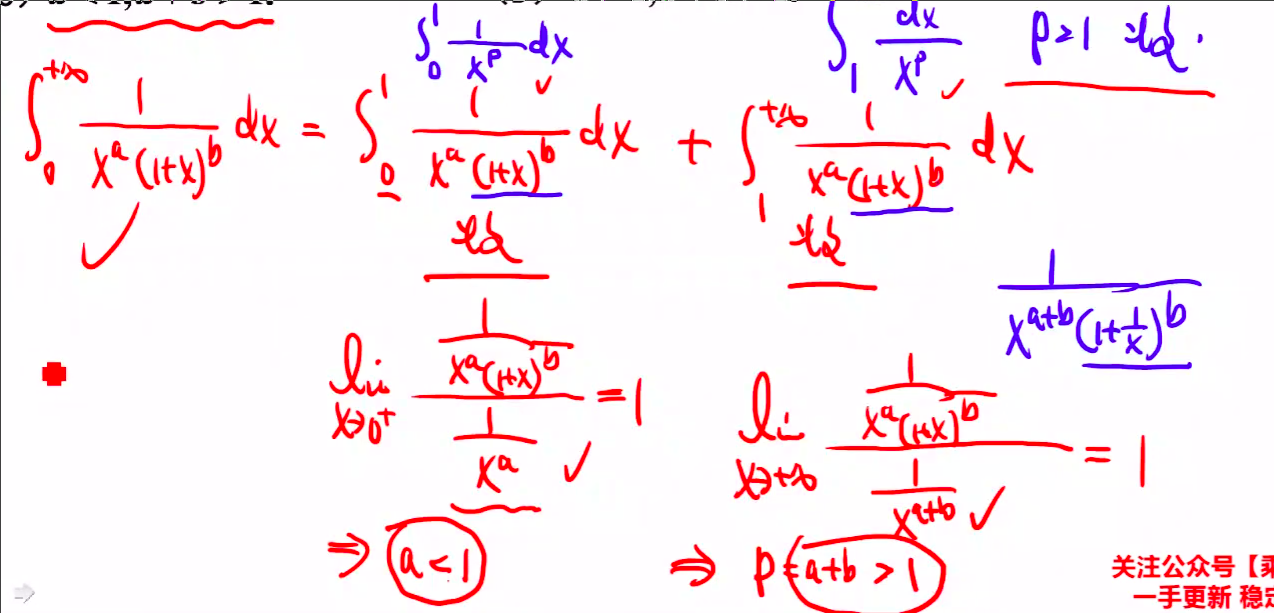 ∫₀¹ 1/x^p dx
∫₁ dx/x^p p>1 收敛.
∫₀^{+∞} 1/(x^a(1+x)^b) dx = ∫₀¹ 1/(x^a(1+x)^b) dx + ∫₁^{+∞} 1/(x^a(1+x)^b) dx
收敛 收敛
1/(x^{a+b}(1+1/x)^b)
lim_{x→0⁺} (1/(x^a(1+x)^b))/(1/x^a) = 1
lim_{x→+∞} (1/(x^a(1+x)^b))/(1/x^{a+b}) = 1
⇒ a<1
⇒ p=a+b>1
关注公众号【乘
一手更新 稳定